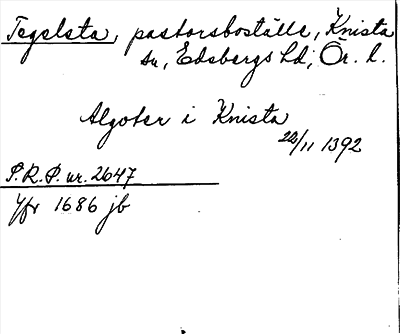 Tegelsta, pastorsboställe, Knista
sn, Edsbergs hd, Ör. l.
Algoter i Knista
22/11 1392
S.R.P. nr. 2647
Jfr 1686 jb